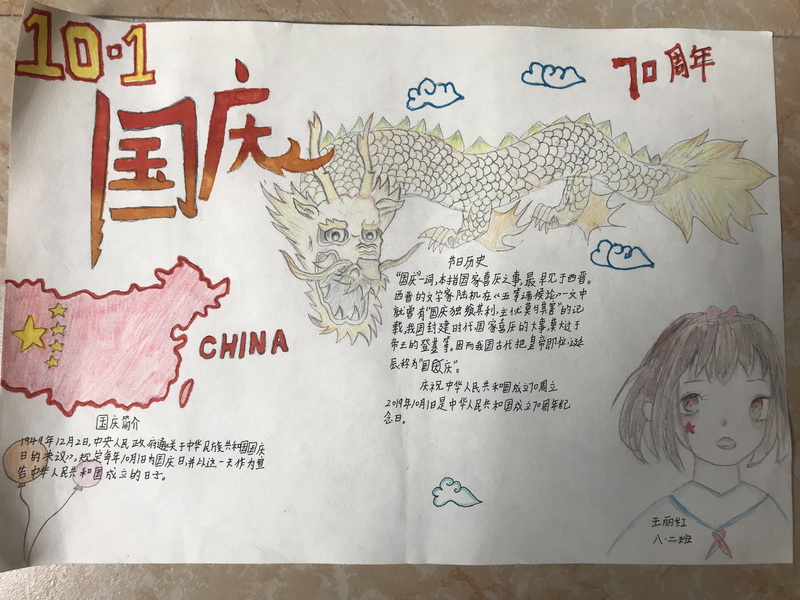 10·1
国庆
70周年
CHINA
节日历史
"国庆"一词,本指国家喜庆之事,最早见于西晋。
西晋的文学家陆机在《五等诸侯论》一文中
就曾有"国庆独飨其利,主忧莫与其害"的记
载,我国封建时代国家喜庆的大事,莫大过于
帝王的登基等。因而我国古代把皇帝即位、诞
辰称为"国庆"。
庆祝中华人民共和国成立70周立
2019年10月1日是中华人民共和国成立70周年纪
念日。
国庆简介
1949年12月2日,中央人民政府通关于中华民族共和国国庆
日的决议》,规定每年10月1日为国庆日,并以这一天作为宣
告中华人民共和国成立的日子。
王丽红
八·二班